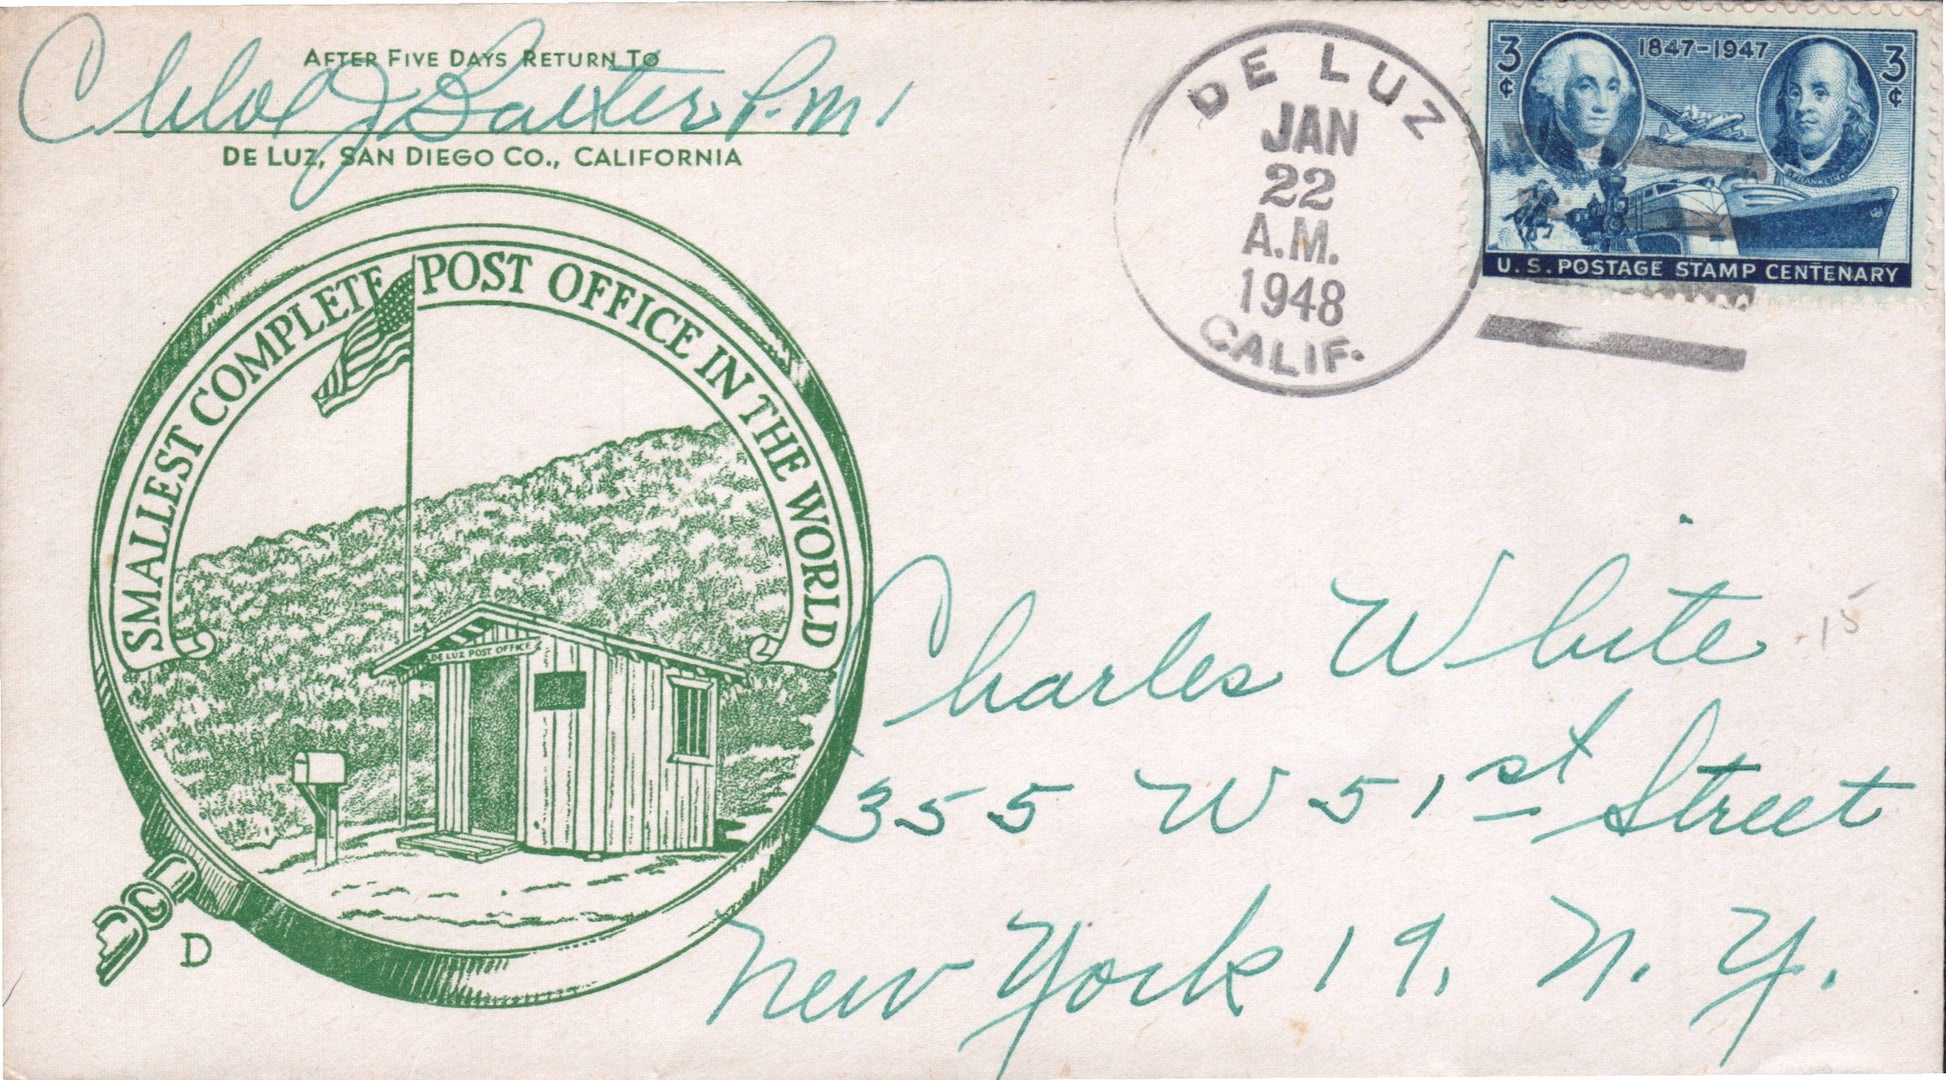 AFTER FIVE DAYS RETURN TO
Chloe J Baxter P.M.
DE LUZ, SAN DIEGO CO., CALIFORNIA
SMALLEST COMPLETE POST OFFICE IN THE WORLD
DE LUZ POST OFFICE
D
DE LUZ
JAN
22
A.M.
1948
CALIF.
3¢ 1847-1947 3¢
WASHINGTON B. FRANKLIN
U.S. POSTAGE STAMP CENTENARY
Charles White
355 W 51st Street
New York 19, N. Y.
15